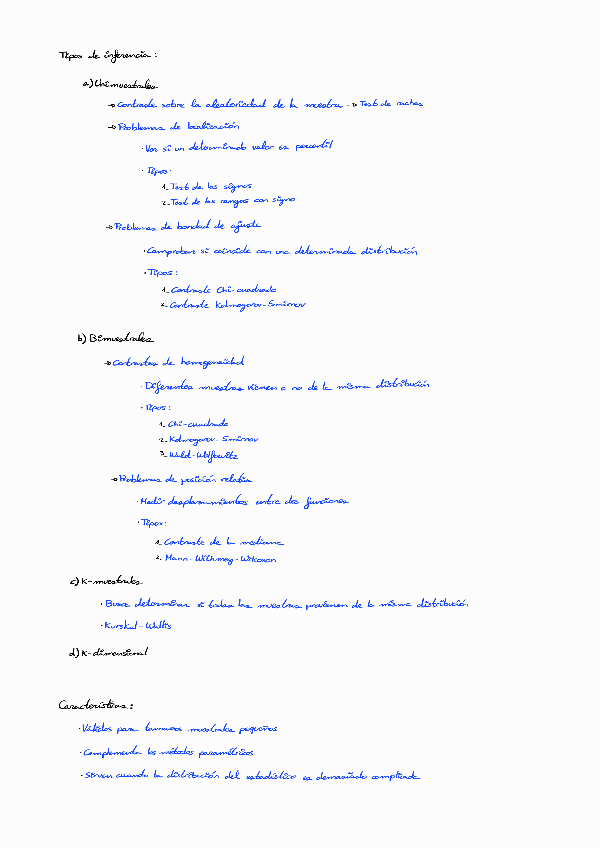 Tipos de inferencia:
a) Unimuestrales
→ Contraste sobre la aleatoriedad de la muestra → Test de rachas
→ Problemas de localización
· Ver si un determinado valor es percentil
· Tipos:
1_ Test de los signos
2_ Test de los rangos con signo
→ Problemas de bondad de ajuste
· Comprobar si coincide con una determinada distribución
· Tipos:
1_ Contraste Chi-cuadrado
2_ Contraste Kolmogorov-Smirnov
b) Bimuestrales
→ Contrastes de homogeneidad
· Diferentes muestras vienen o no de la misma distribución
· Tipos:
1_ Chi-cuadrado
2_ Kolmogorov-Smirnov
3_ Wald-Wolfowitz
→ Problemas de posición relativa
· Medir desplazamientos entre dos funciones
· Tipos:
1_ Contraste de la mediana
2_ Mann-Withney-Wilcoxon
c) K-muestrales
· Busca determinar si todas las muestras provienen de la misma distribución
· Kurskal-Wallis
d) K-dimensional
Características:
· Válidos para tamaños muestrales pequeños
· Complementa los métodos paramétricos
· Sirven cuando la distribución del estadístico es demasiado complicada